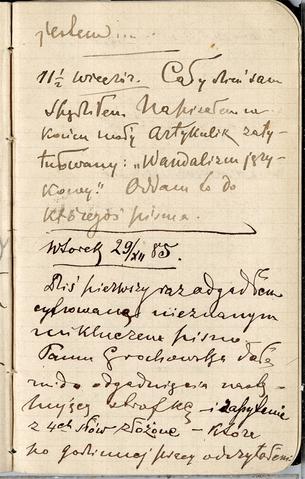 jestem....
11½ wieczór. Cały dzień sam
spędziłem. Napisałem w
końcu mały artykulik zaty-
tułowany: „Wandalizm języ-
kowy." Oddam to do
któregoś pisma.
Wtorek 29/XII 85.
Dziś pierwszy raz odgadłem
cyfrowane nieznanym
mi kluczem pismo
Panna Grochowska dała
mi do odgadnięcia
strofkę i zapytanie
z 4ech słów złożone — które
po godzinnej pracy odczytałem